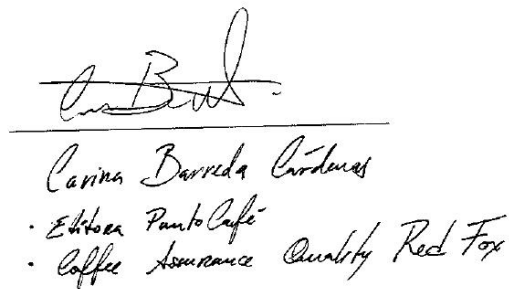 Carina Barreda Cárdenas
· Editora PuntoCafé
· Coffee Assurance Quality Red Fox